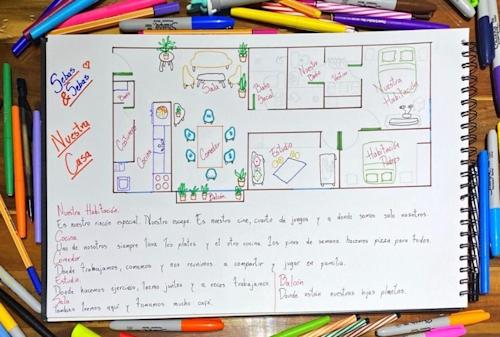 Sebas
& Sebas
Nuestra
Casa
Sala
Baño
Social
Nuestro
Baño
Nuestra
Habitación
Cocina
Comedor
Estudio
Habitación
Balcón
Nuestra Habitación.
Es nuestro rincón especial. Nuestro escape. Es nuestro cine, cuarto de juegos y a donde somos solo nosotros.
Cocina
Uno de nosotros siempre lava los platos y el otro cocina. Los fines de semana hacemos pizza para todos.
Comedor
Donde trabajamos, comemos y nos reunimos a compartir y jugar en familia.
Estudio.
Donde hacemos ejercicio, juntos y a veces trabajamos.
Sala
También leemos aquí y tomamos mucho café.
Balcón
Donde están nuestras hijas plantas.